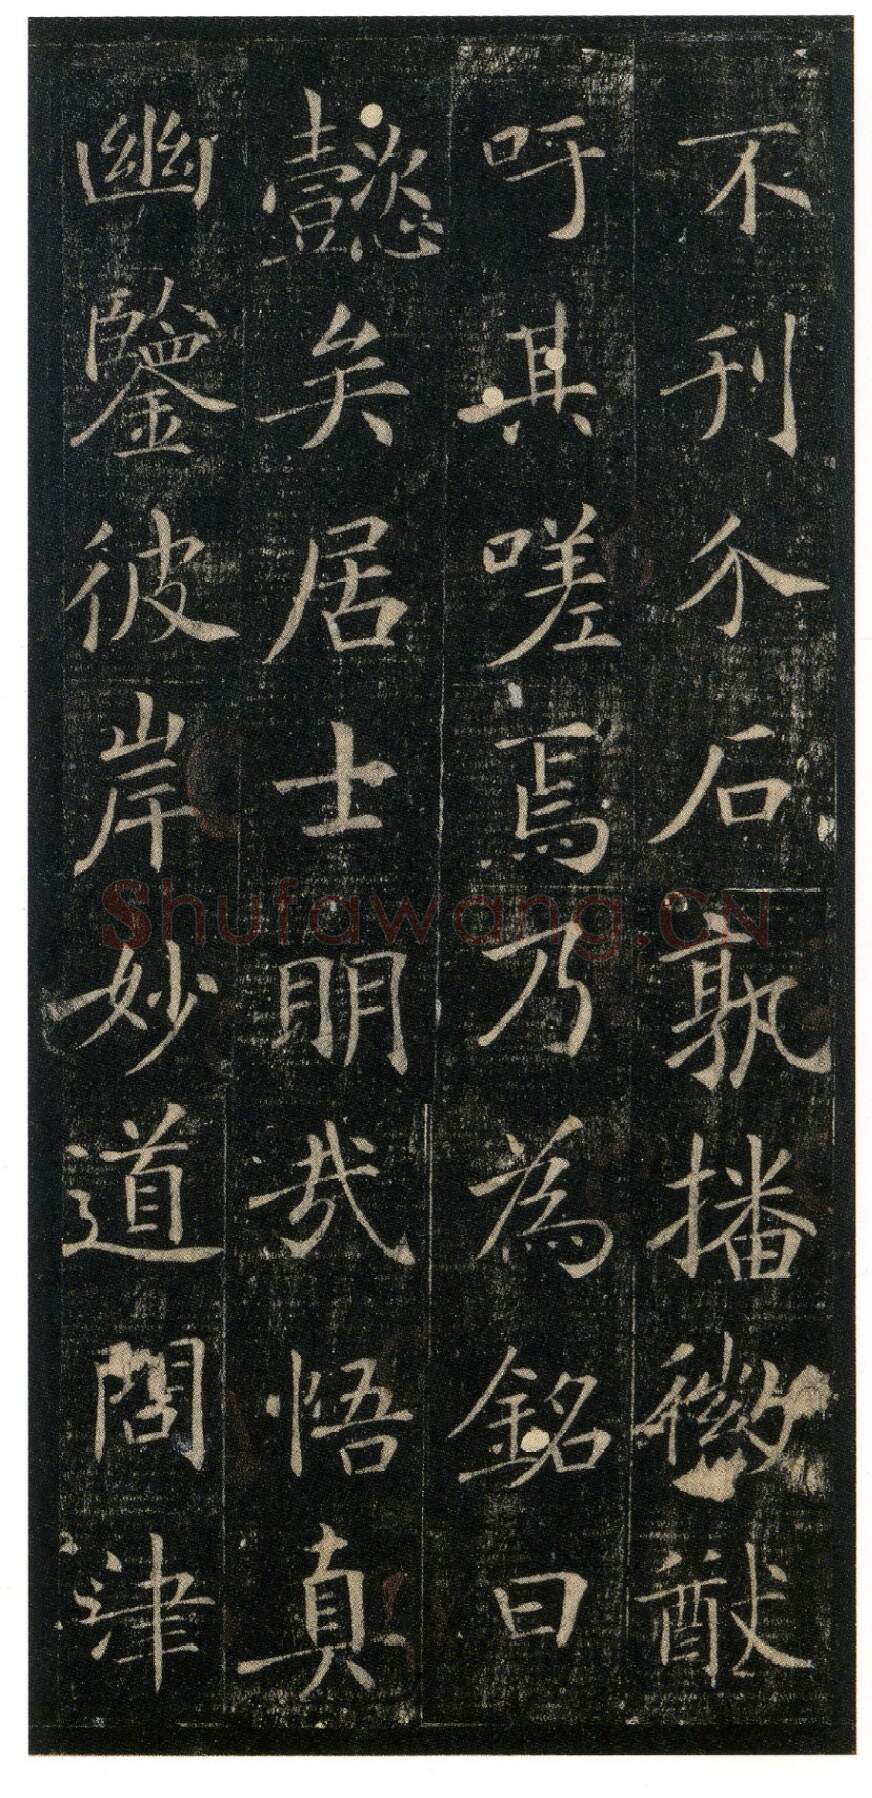 不刊介石孰播徽猷
吁其嗟焉乃為銘曰
懿矣居士明哉悟真
幽鑒彼岸妙道問津
Shufawang.CN